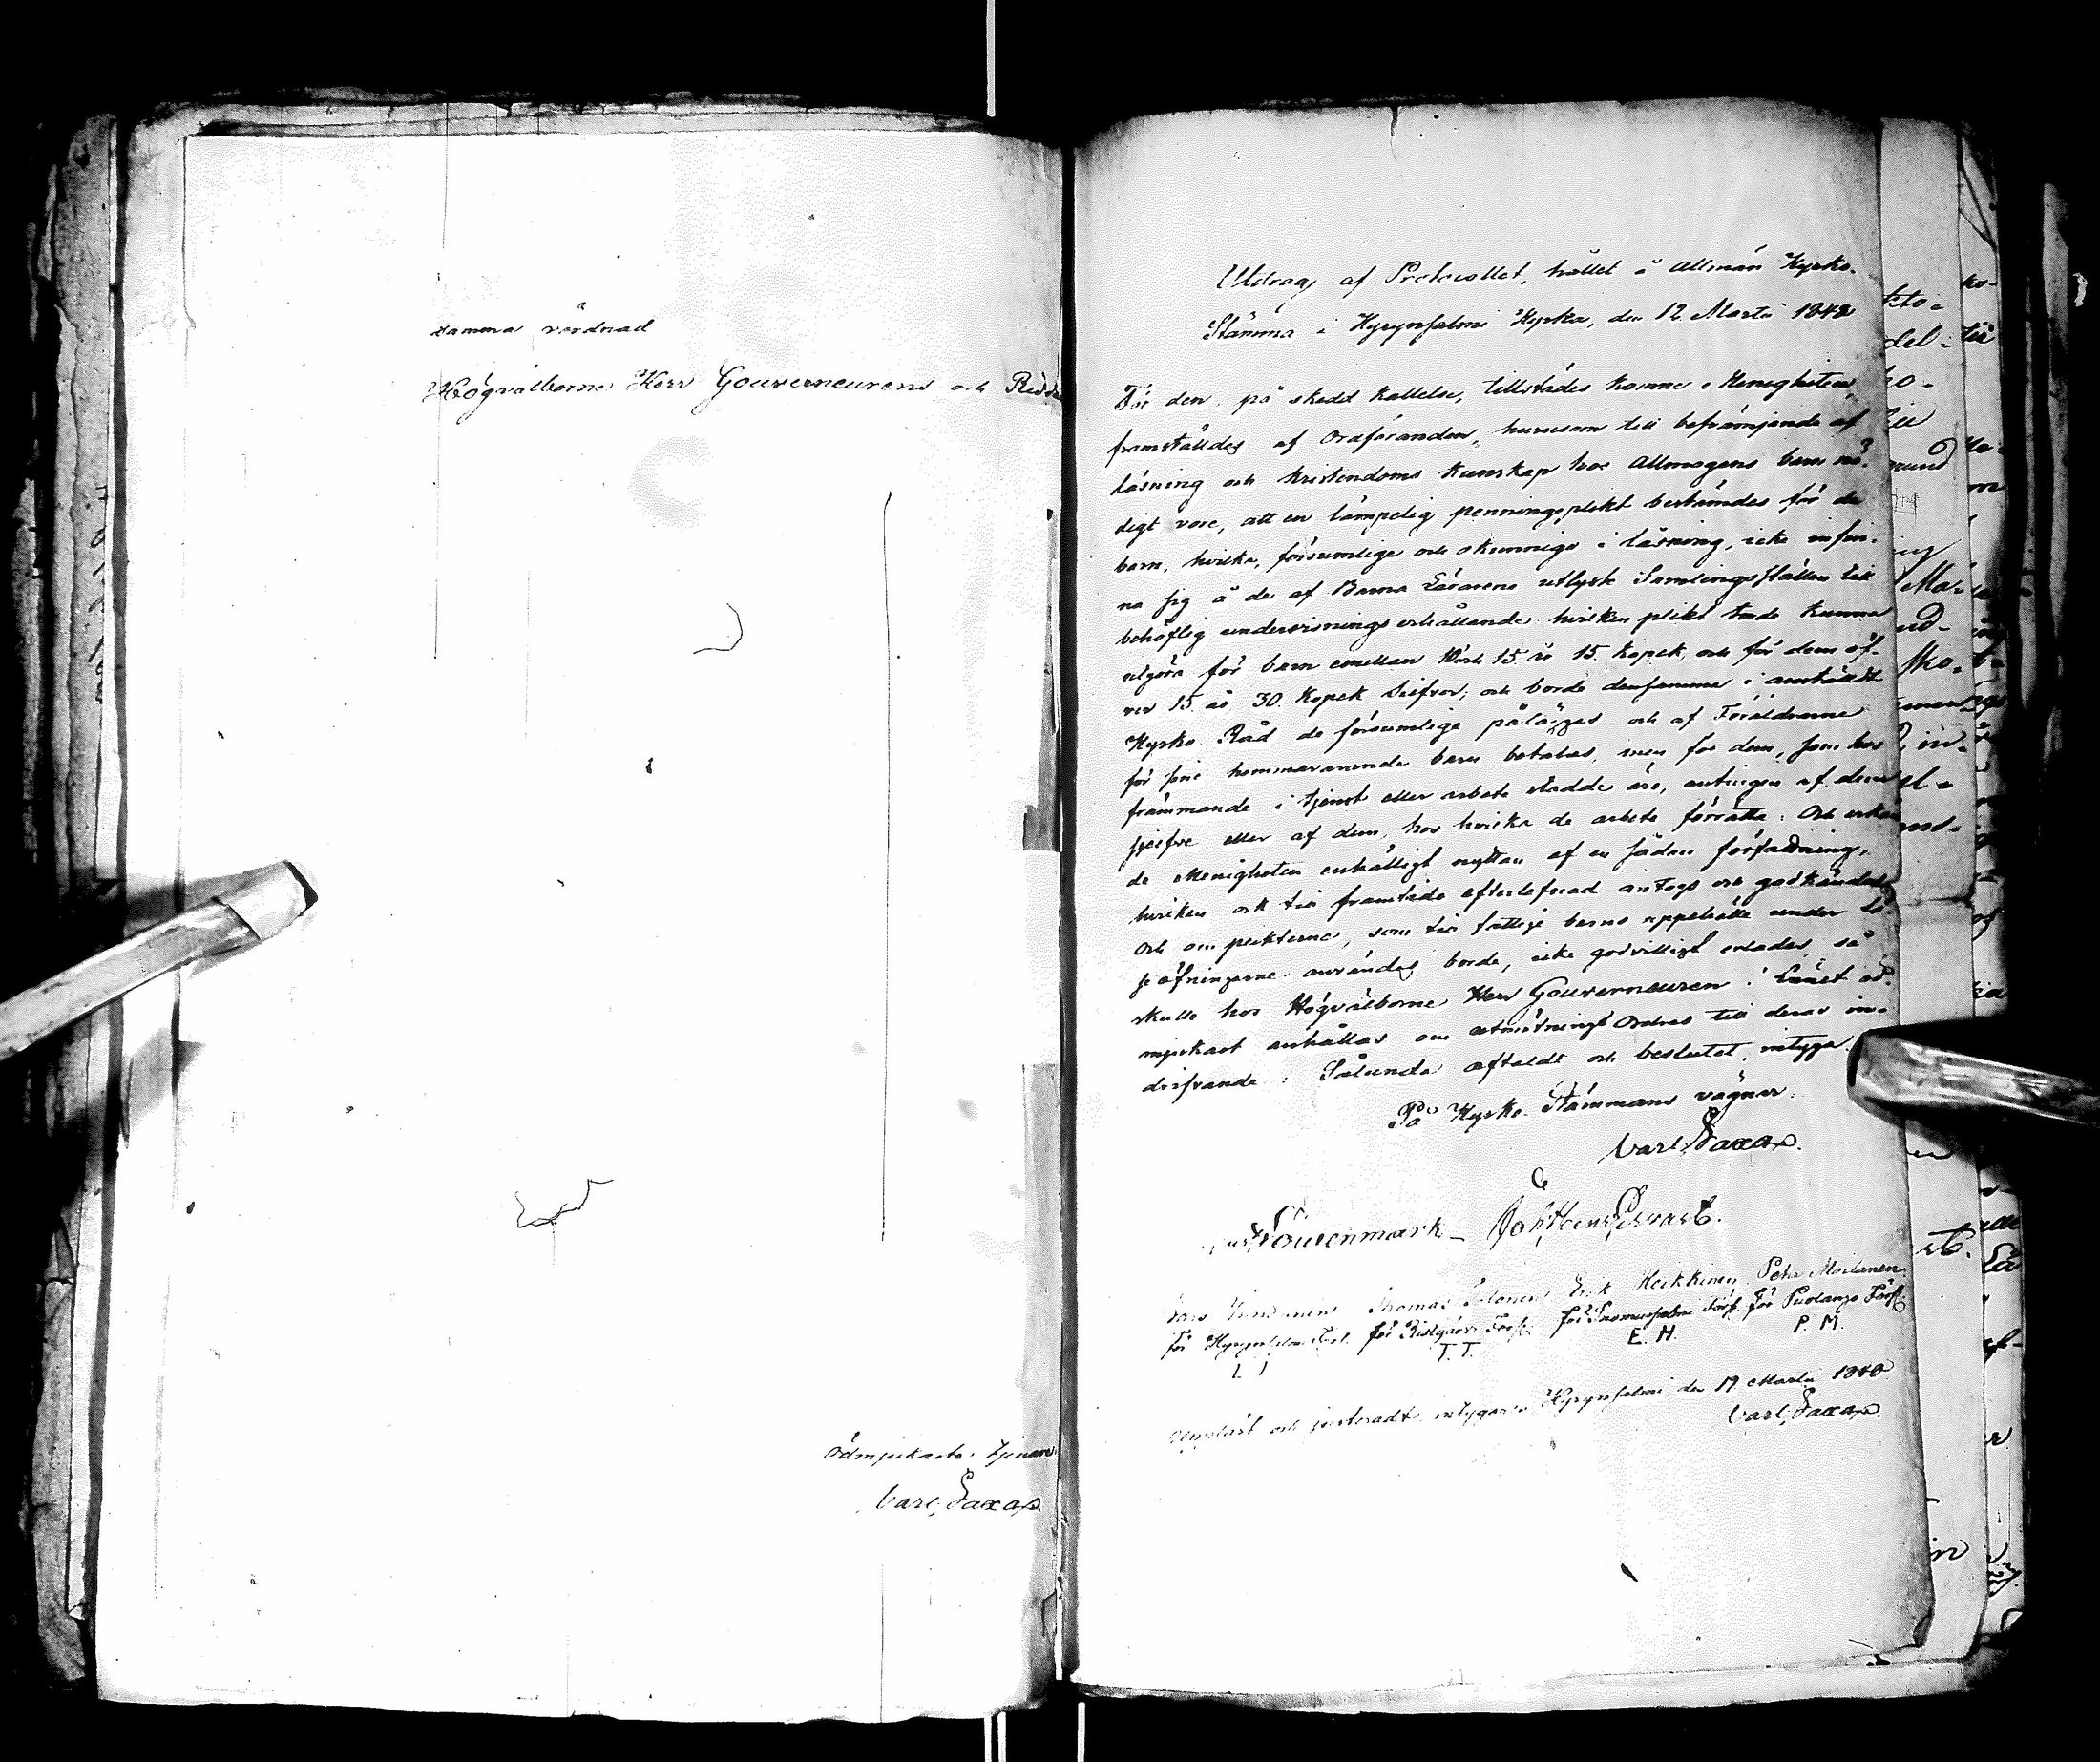 samma vördnad
Högvälborne Herr Gouverneurens och
ödmjukaste tjenare
Carl Saxa
Utdrag af Protocollet, hållet å allmän Kyrko-
Stämma i Hyrynsalmi Kyrka, den 12 Martii 1848
För den, på skedd kallelse, tillstädes komne Menigheten,
framställdes af Ordföranden, hurusom till befrämjande af
läsning och kristendoms kunskap hos Allmogens barn nö-
digt vore, att en lämpelig penningeplikt bestämdes för de
barn, hvilka, försumlige och okunnige i läsning, icke infin-
na sig å de af Barna Lärarene utlyste Samlingsställen till
behöflig undervisnings erhållande hvilken plikt torde kunna
utgöra för barn emellan 10 och 15 år 15 Kopek, och för dem öf-
ver 15 år 30 Kopek Silfver; och borde densamma i anstäldt
Kyrko Råd de försumlige påläggas och af Föräldrarne
för sine hemmavarande barn betalas, men för dem, som hos
främmande i tjenst eller arbete stadde äro, antingen af dem
sjelfve eller af dem, hos hvilka de arbete förrätta. Och erkän
de Menigheten enhälligt nyttan af en sådan författning,
hvilken ock till framtida efterlefnad antogs och godkändes
och om plikterna, som till fattige barns uppehälle under lä-
seöfningarne användas borde, icke godvilligt erlades, så
skulle hos Högvälborne Herr Gouverneuren i Länet öd-
mjukast anhållas om utmätnings Ordres till deras in-
drifvande. Sålunda aftaldt och beslutet, intyga
På Kyrko Stämmans vägnar.
Carl Saxa
Löuvenmark Joh. Henr.
Thomas Tolonen Erik Heikkinen Petr Moilanen
för Hyrynsalmi för Ristijärvi Förs. för Suomussalmi Förs. för Puolango Förs.
T. T. E. H. P. M.
Uppläst och justeradt, intygar Hyrynsalmi den 19 Martii 1848
Carl Saxa